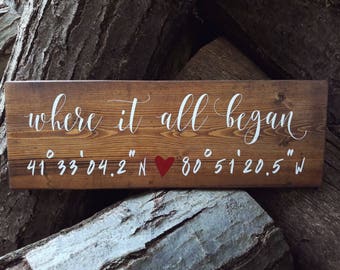 where it all began
41°33'04.2"N ♥ 80°51'20.5"W